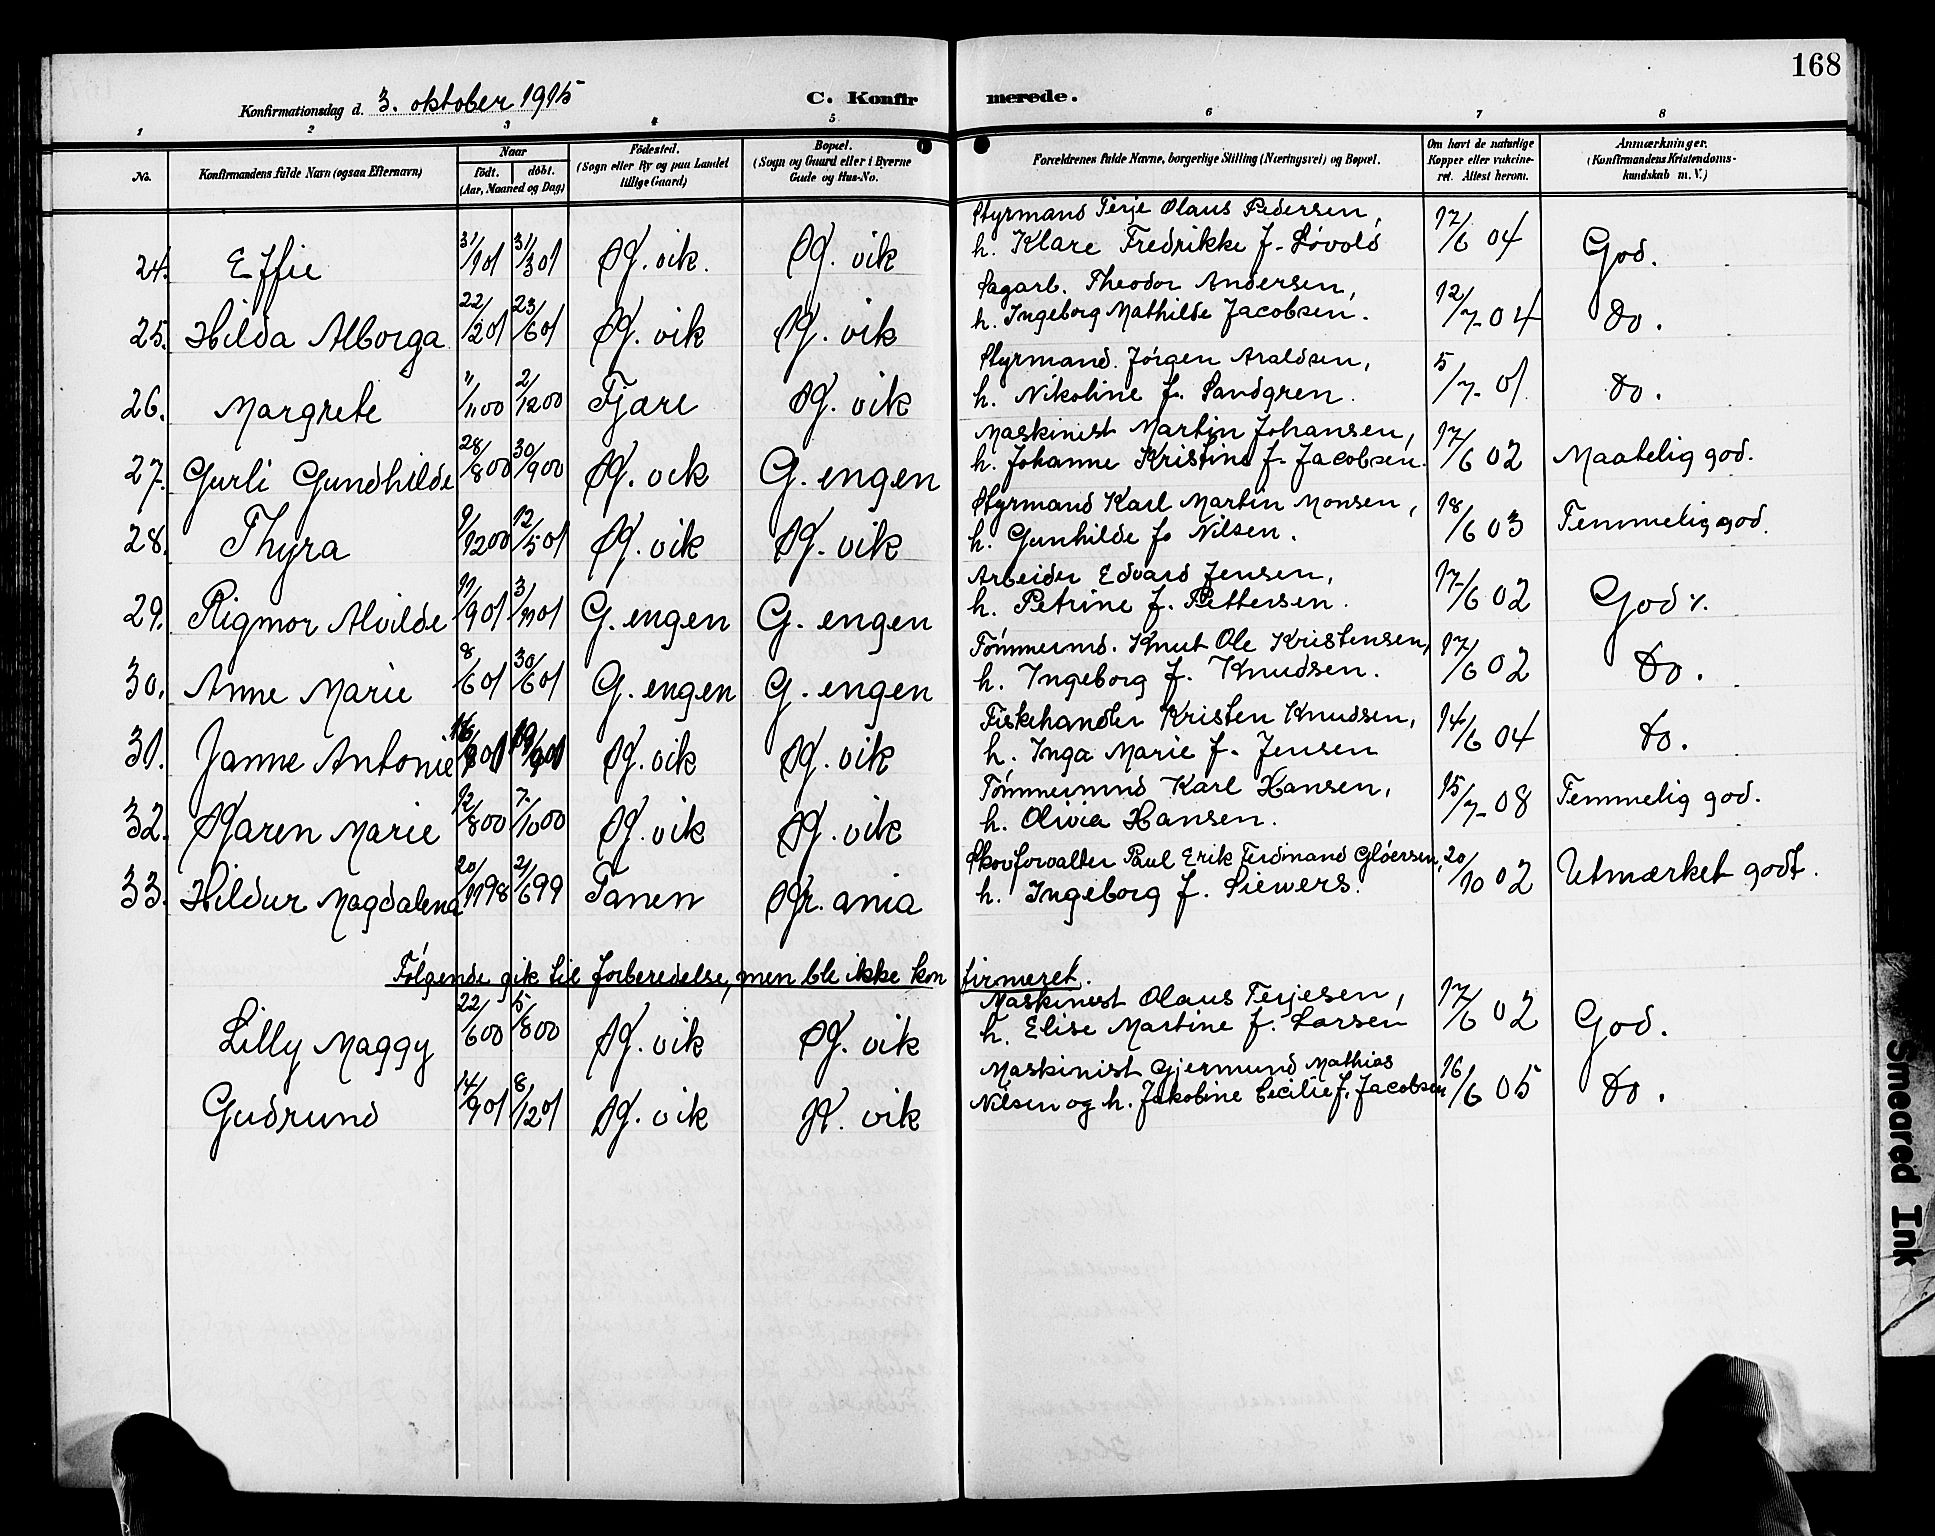 168
Konfirmationsdag d. 3. oktober 1915
C. Konfirmerede.
1 2 3 4 5 6 7 8
No.
Konfirmandens fulde Navn (ogsaa Efternavn)
Naar
født. døbt.
(Aar, Maaned og Dag)
Fødested.
(Sogn eller By og paa Landet
tillige Gaard)
Bopæl.
(Sogn og Gaard eller i Byerne
Gade og Hus-No.
Forældrenes fulde Navne, borgerlige Stilling (Næringsvei) og Bopæl.
Om havt de naturlige
Kopper eller vakcine-
ret. Attest herom.
Anmærkninger.
(Konfirmandens Kristendoms-
kundskab m. V.)
Styrmand Terje Olaus Pedersen,
24. Effie 31/1 01 31/3 01 vik. vik h. Klare Fredrikke f. Løvold 17/6 04 God.
Sagarb. Theodor Andersen,
25. Hilda Alborga 22/2 01 23/6 01 vik vik h. Ingeborg Mathilde Jacobsen. 12/7 04 do.
Styrmand. Jørgen Araldsen,
26. Margrete 11/11 00 2/12 00 Fjære vik h. Nikoline f. Sandgren. 5/7 01. do.
Maskinist Martin Johansen,
27. Gurli Gundhilde 28/8 00 30/9 00 vik G. engen h. Johanne Kristine f. Jacobsen. 17/6 02 Maatelig god.
Styrmand Karl Martin Monsen,
28. Thyra 9/12 00 12/5 01 vik vik h. Gunhilde f. Nilsen. 18/6 03 Temmelig god.
Arbeider Edvard Jensen,
29. Rigmor Alvilde 11/9 01 3/11 01 G. engen G. engen h. Petrine f. Pettersen. 17/6 02 God
Tømmermd. Knut Ole Kristensen,
30. Anne Marie 8/6 01 30/6 01 G. engen G. engen h. Ingeborg f. Knudsen. 17/6 02 do.
Fiskehandler Kristen Knudsen,
31. Janne Antonie vik vik h. Inga Marie f. Jensen 14/6 04 do.
Tømmermnd Karl Hansen,
32. Karen Marie 12/8 00 7/10 00 vik vik h. Olivia Hansen. 15/7 08 Temmelig god.
Skovforvalter Paul Erik Ferdinand Gløersen,
33. Hildur Magdalena 20/11 98 21/6 99 Tanen Kr. ania h. Ingeborg f. Siewers. 20/10 02 Utmærket godt.
Følgende gik til forberedelse, men ble ikke konfirmeret.
Maskinist Olaus Terjesen,
Lilly Maggy 22/6 00 5/8 00 vik vik h. Elise Martine f. Larsen 17/6 02 God.
Maskinist Gjermund Mathias
Gudrund 14/9 01 8/12 01 vik vik Nilsen og h. Jakobine Cecilie f. Jacobsen 16/6 05 do.
Smeared Ink